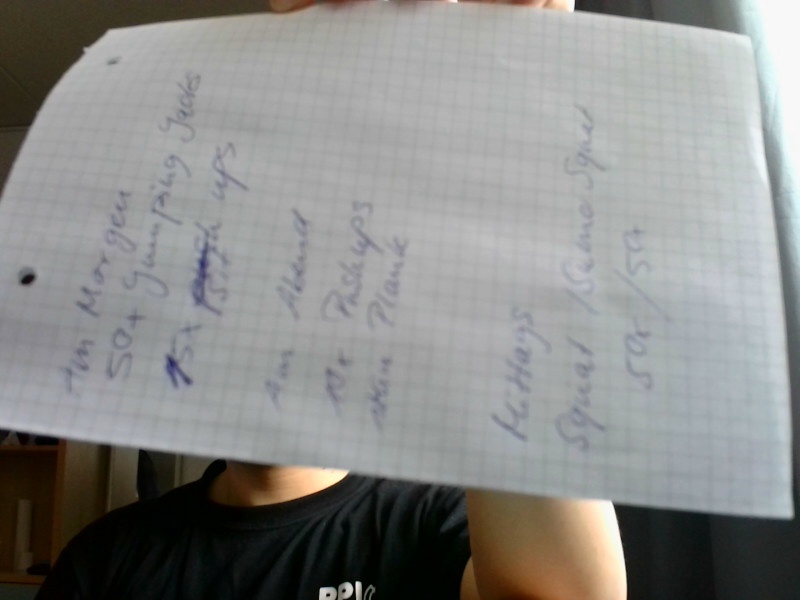 Am Morgen
50x Jumping Jacks
15x ups
Am Abend
10x Pushups
1 Min Plank
Mittags
Squat / Sumo Squat
50x / 50x